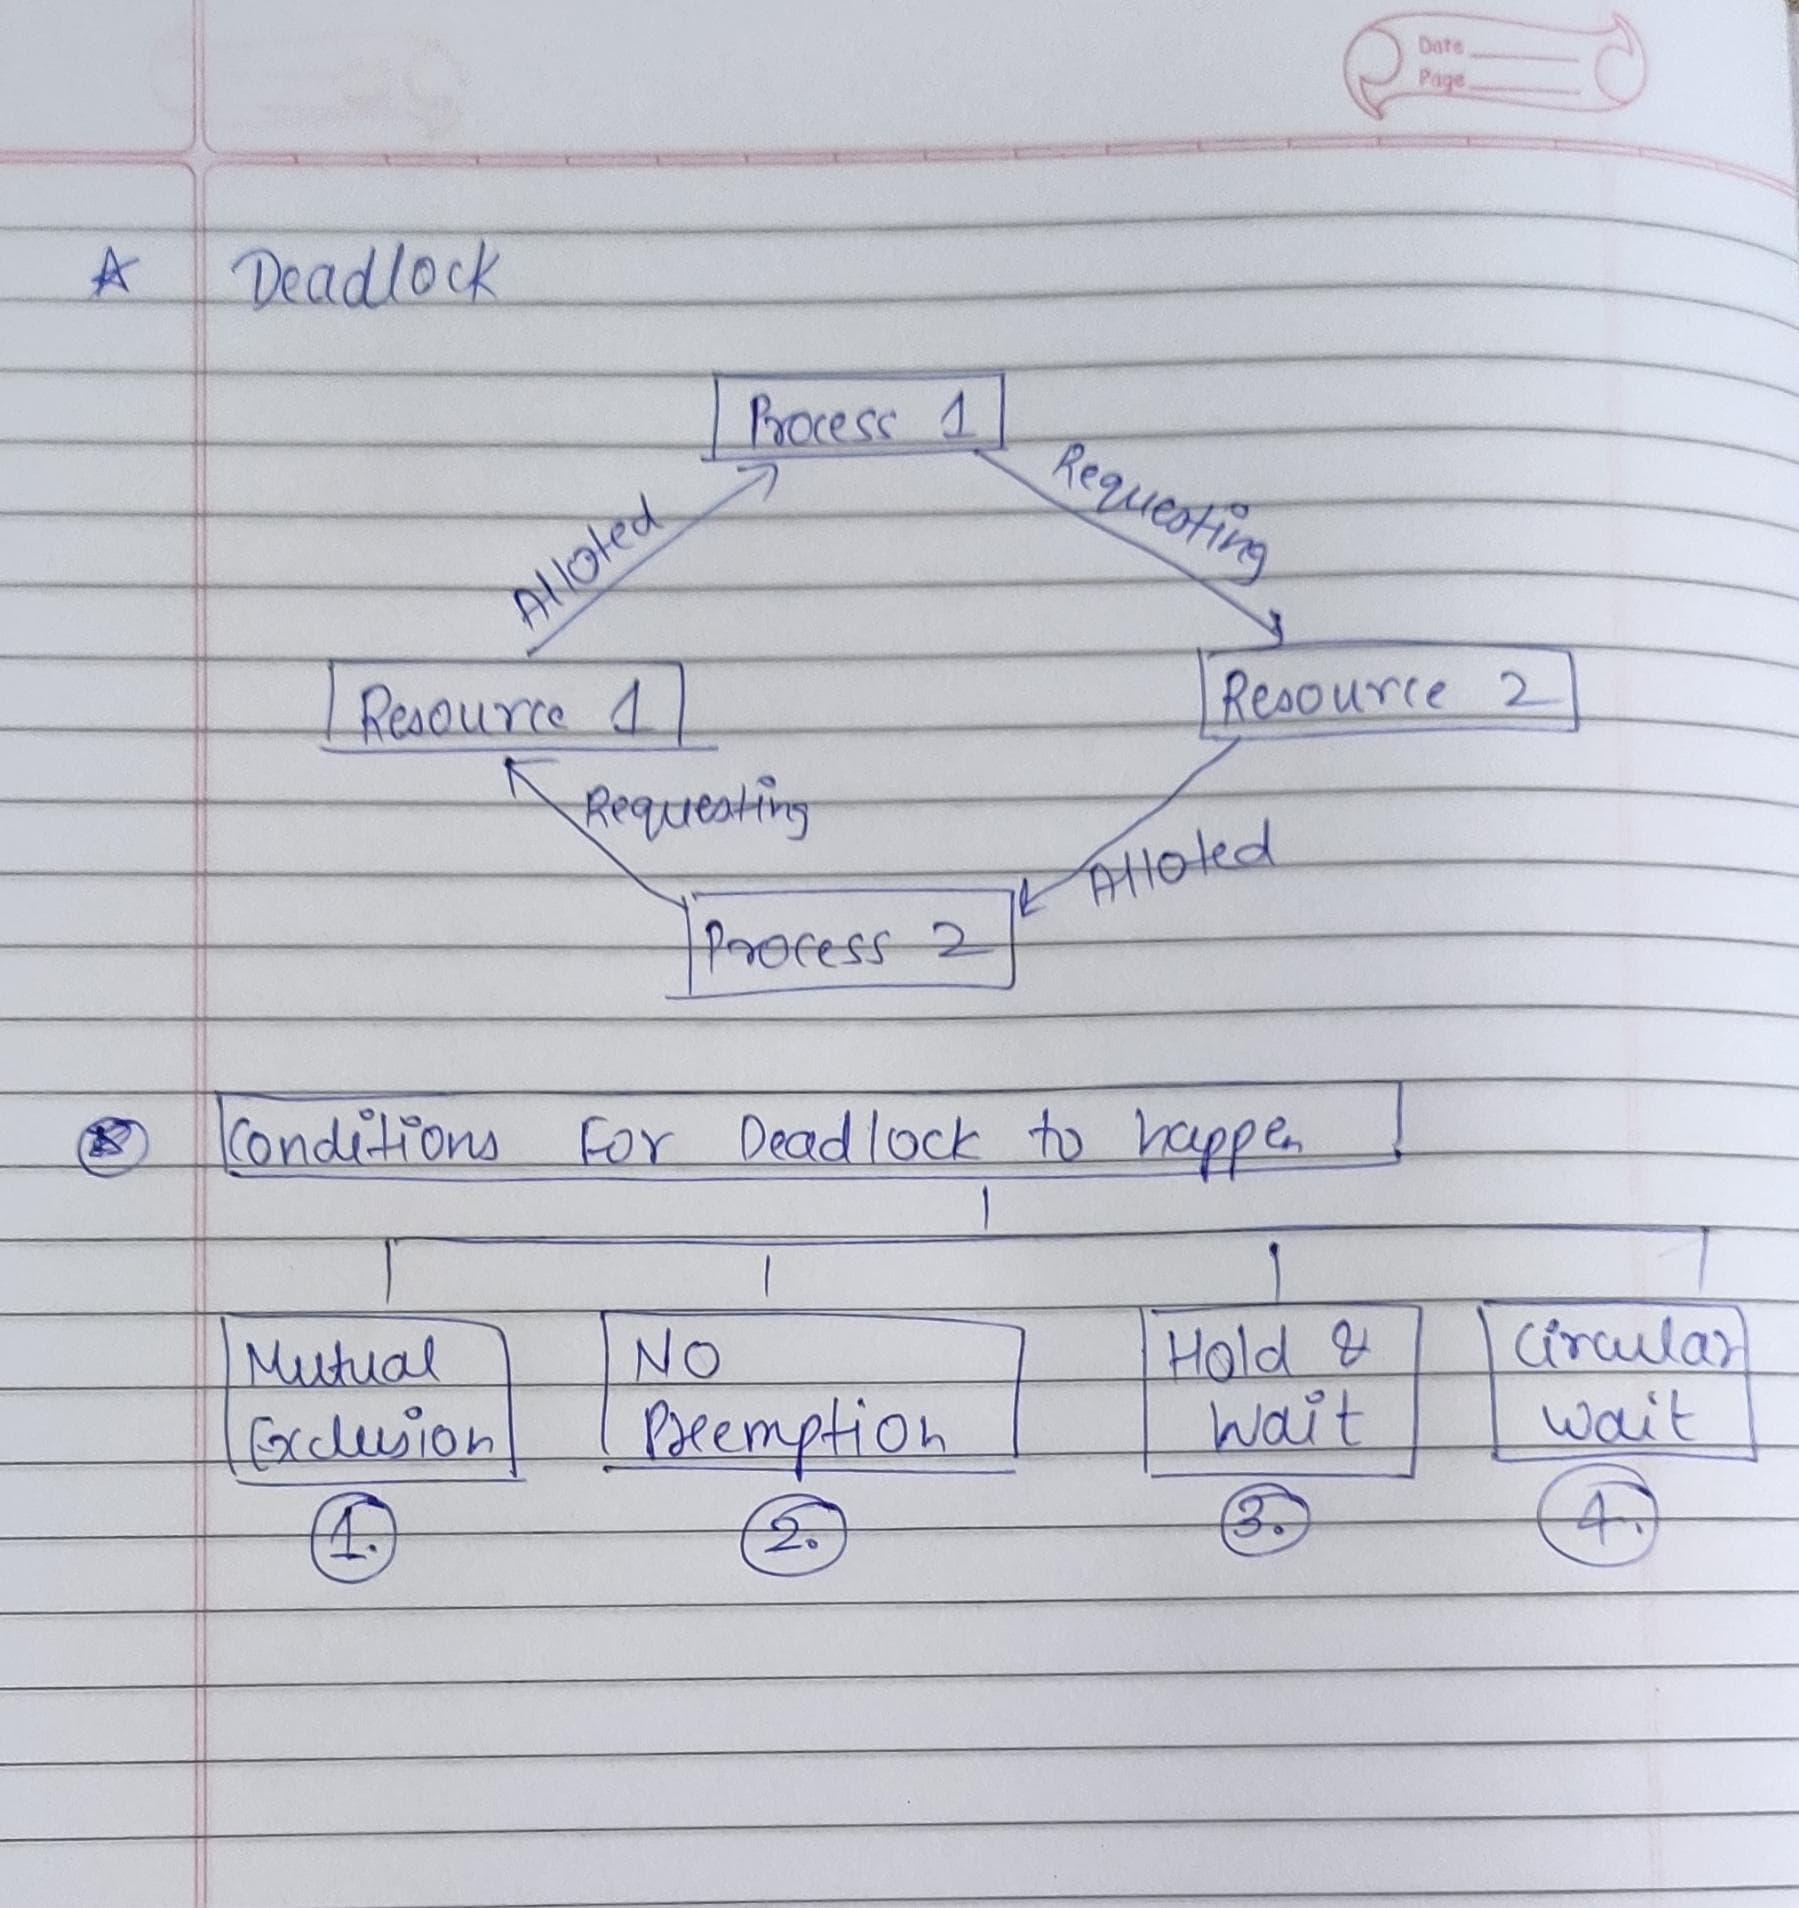 Date
Page
Deadlock
Process 1
Alloted
Requesting
Resource 1
Resource 2
Requesting
Alloted
Process 2
Conditions For Deadlock to happen
Mutual
Exclusion
NO
Preemption
Hold &
Wait
Circular
wait
1.
2.
3.
4.